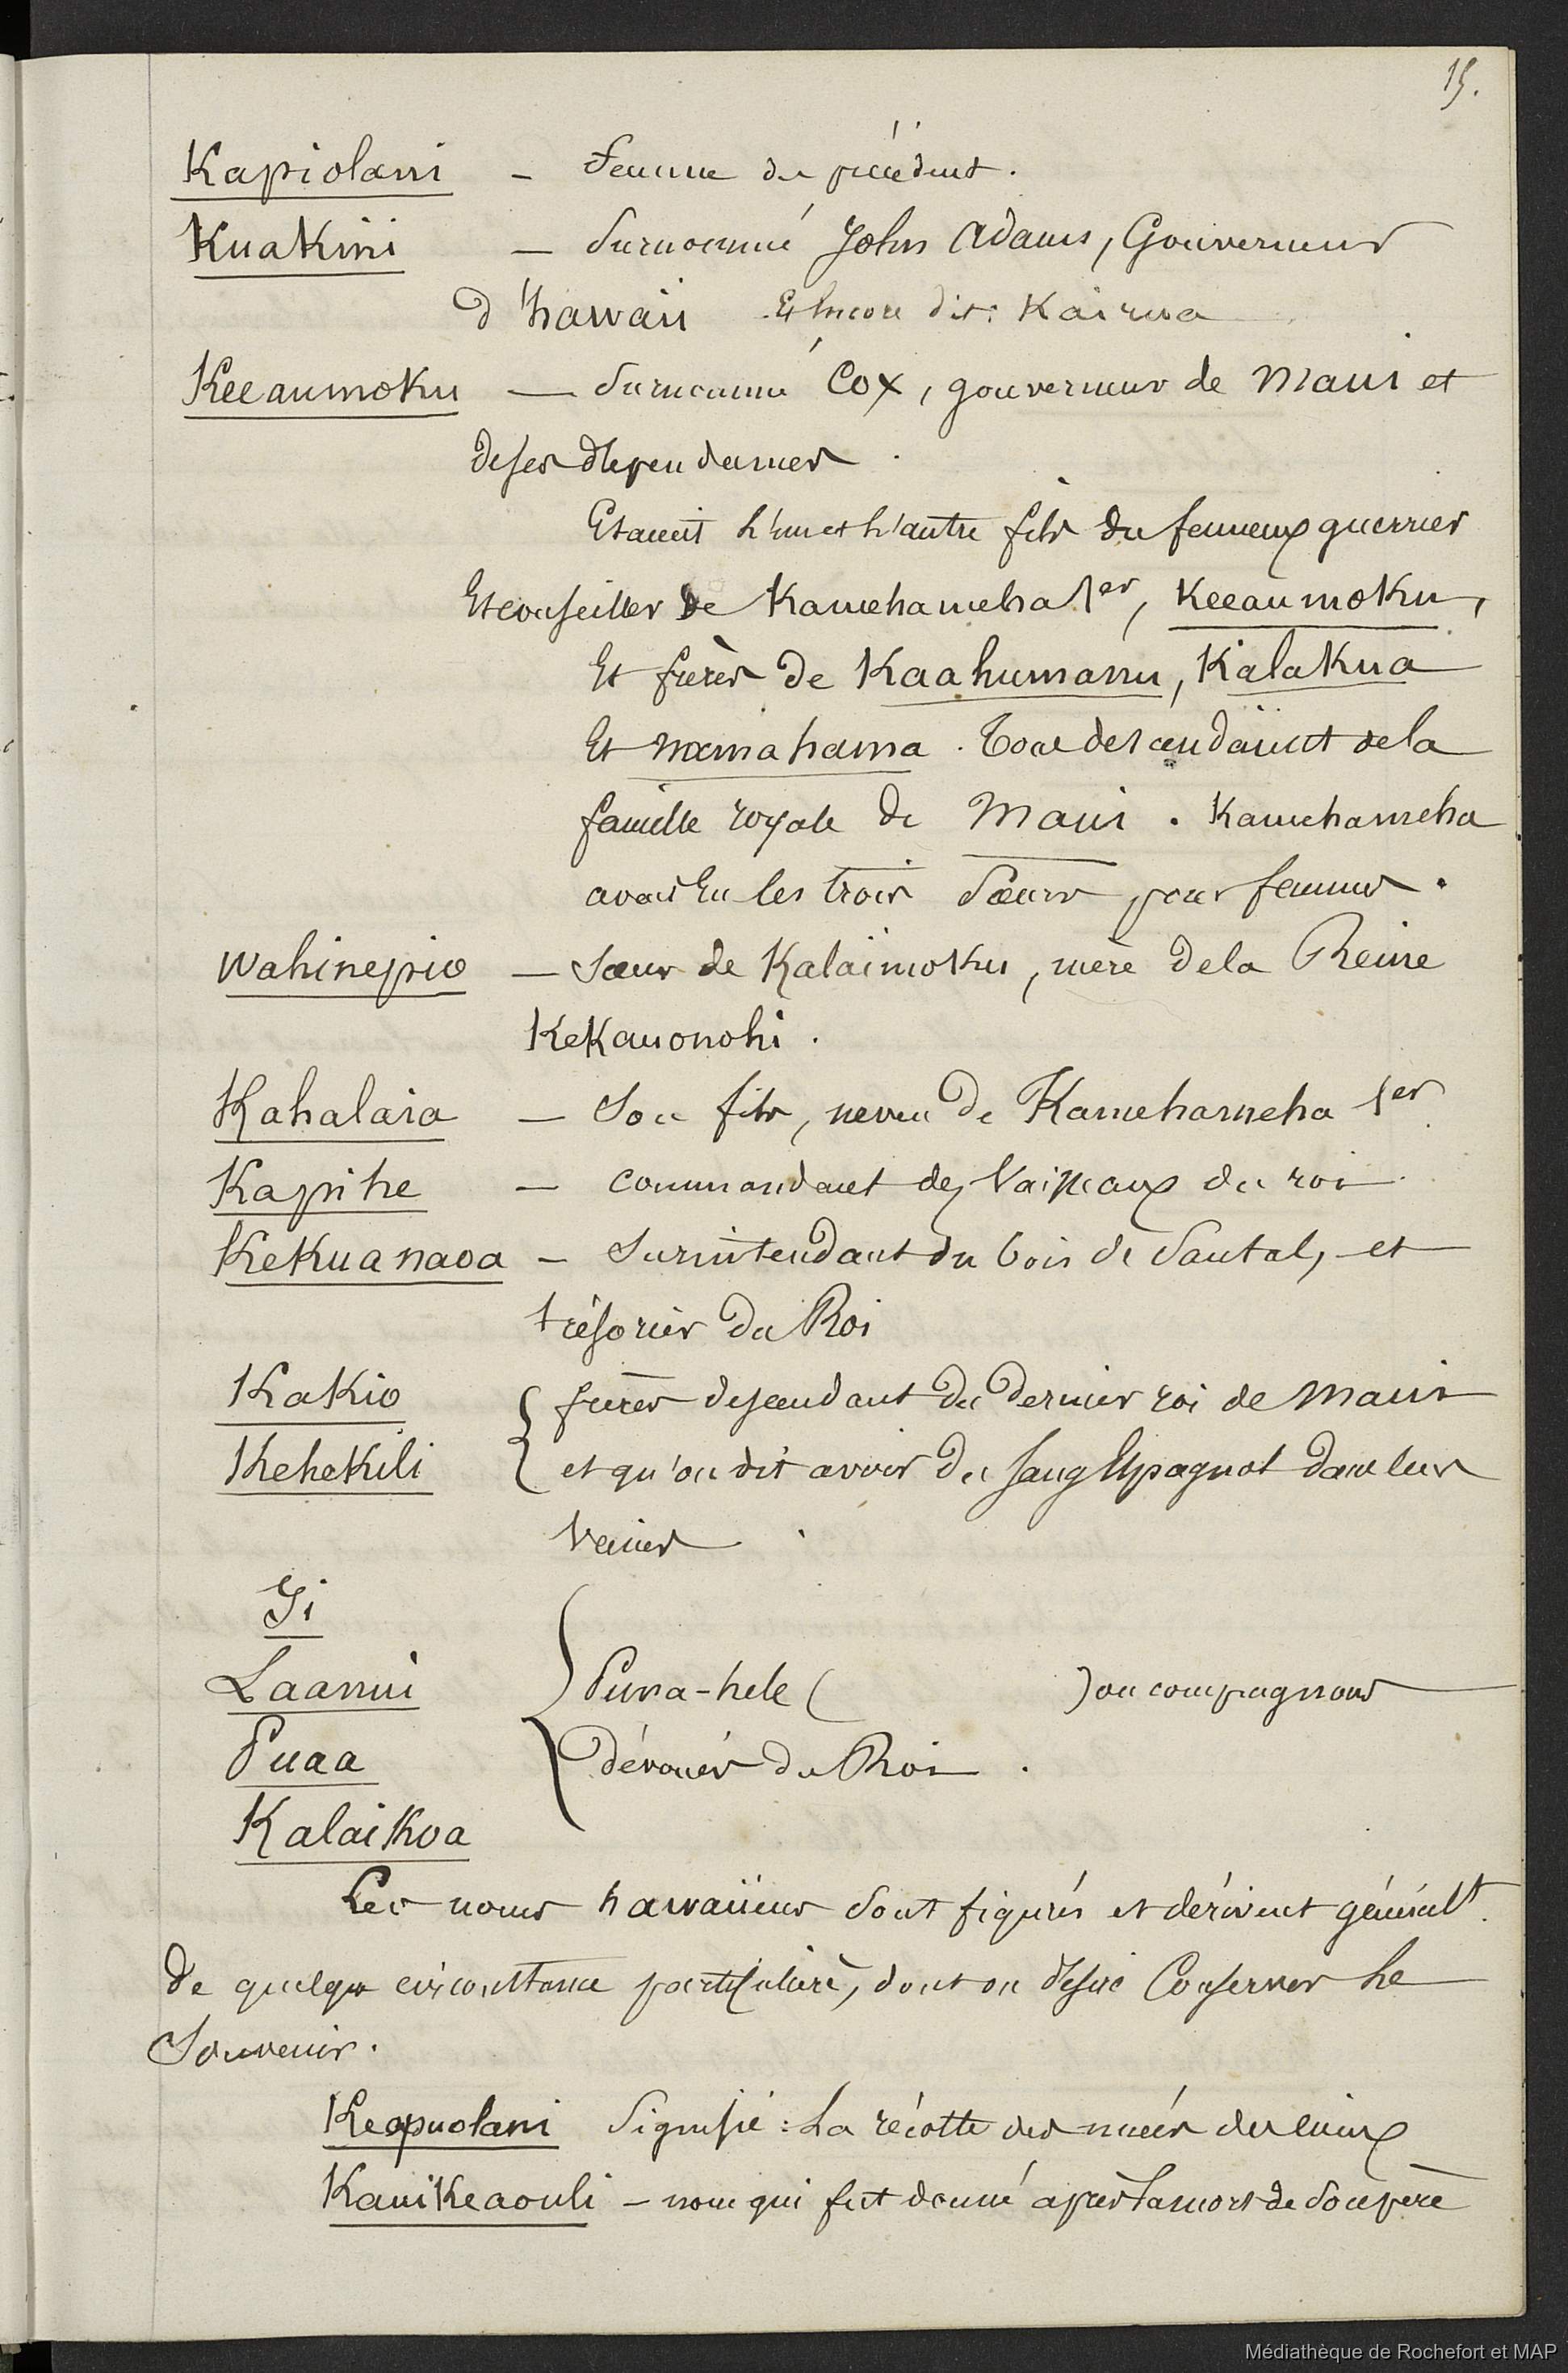 15.
Kapiolani – femme du précédent.
Kuakini – Surnommé John Adams, Gouverneur
d'hawaii Et encore dit: Kairua
Keeaumoku – Surnommé Cox, gouverneur de Maui et
de ses dépendances.
Etaient l'un et l'autre fils du fameux guerrier
Et conseiller de Kamehameha 1er, Keeaumoku,
Et frères de Kaahumanu, Kalakua
Et namahana. Tous descendaient de la
famille royale de Maui. Kamehameha
avait Eu les trois Sœurs pour femmes.
Wahinepio – Sœur de Kalaïmoku, mère de la Reine
Kekauonohi.
Kahalaia – Son fils, neveu de Kamehameha 1er
Kapihe – commandant des Vaisseaux du roi
Kekuanaoa – Surintendant du bois de Santal, et
trésorier du Roi
Kakio { frères descendant du dernier roi de Maui
Kehekili et qu'on dit avoir du sang Espagnol dans leurs
Veines.
Ii
Laanui { Puna-hele ( ) ou compagnons
Puaa dévoués du Roi.
Kalaikoa
Les noms hawaiiens sont figurés et dérivent généralt.
de quelque circonstance particulière, dont on désire Conserver le
Souvenir.
Keopuolani Signifie: La récolte des nuées des cieux
Kauikeaouli – nom qui fut donné après la mort de son père
Médiathèque de Rochefort et MAP